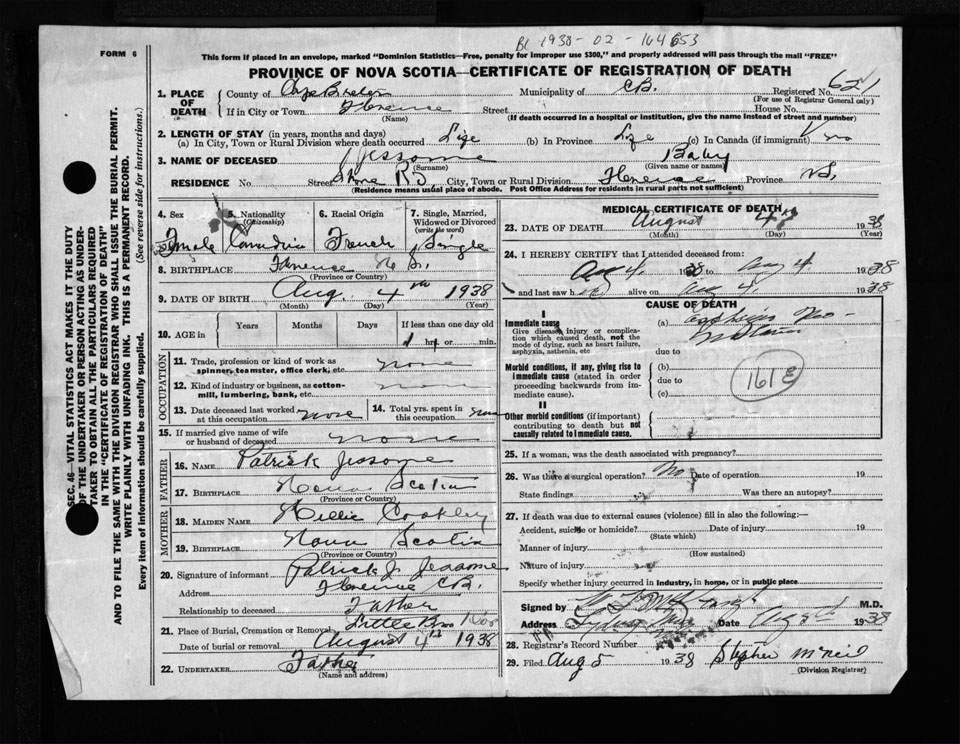 BL 1938-02-164653
FORM 6
This form if placed in an envelope, marked "Dominion Statistics—Free, penalty for improper use $300," and properly addressed will pass through the mail "FREE"
PROVINCE OF NOVA SCOTIA—CERTIFICATE OF REGISTRATION OF DEATH
SEC. 46—VITAL STATISTICS ACT MAKES IT THE DUTY
OF THE UNDERTAKER OR PERSON ACTING AS UNDER-
TAKER TO OBTAIN ALL THE PARTICULARS REQUIRED
IN THE "CERTIFICATE OF REGISTRATION OF DEATH"
AND TO FILE THE SAME WITH THE DIVISION REGISTRAR WHO SHALL ISSUE THE BURIAL PERMIT.
WRITE PLAINLY WITH UNFADING INK. THIS IS A PERMANENT RECORD.
Every item of information should be carefully supplied. (See reverse side for instructions.)
1. PLACE OF DEATH County of Cape Breton Municipality of C.B. Registered No. 621
(For use of Registrar General only)
If in City or Town Florence Street House No.
(Name) (If death occurred in a hospital or institution, give the name instead of street and number)
2. LENGTH OF STAY (in years, months and days)
(a) In City, Town or Rural Division where death occurred Life (b) In Province Life (c) In Canada (if immigrant) no
3. NAME OF DECEASED Jessome Baby
(Surname) (Given name or names)
RESIDENCE No. Street City, Town or Rural Division Florence Province N.S.
(Residence means usual place of abode. Post Office Address for residents in rural parts not sufficient)
4. Sex 5. Nationality (Citizenship) 6. Racial Origin 7. Single, Married, Widowed or Divorced (write the word)
Female Canadian French Single
8. BIRTHPLACE Florence N.S.
(Province or Country)
9. DATE OF BIRTH Aug. 4th 1938
(Month) (Day) (Year)
10. AGE in Years Months Days If less than one day old
1 hr. or min.
OCCUPATION
11. Trade, profession or kind of work as spinner, teamster, office clerk, etc. none
12. Kind of industry or business, as cotton-mill, lumbering, bank, etc. none
13. Date deceased last worked at this occupation none 14. Total yrs. spent in this occupation none
15. If married give name of wife or husband of deceased none
FATHER
16. NAME Patrick Jessome
17. BIRTHPLACE Nova Scotia
(Province or Country)
MOTHER
18. MAIDEN NAME
19. BIRTHPLACE Nova Scotia
(Province or Country)
20. Signature of informant Patrick J. Jessome
Address Florence C.B.
Relationship to deceased Father
21. Place of Burial, Cremation or Removal Little Bras
Date of burial or removal August 4th 1938
22. UNDERTAKER Father
(Name and address)
MEDICAL CERTIFICATE OF DEATH
23. DATE OF DEATH August 4th 1938
(Month) (Day) (Year)
24. I HEREBY CERTIFY that I attended deceased from:
Aug 4. 1938 to Aug 4 1938
and last saw h alive on Aug 4. 1938
CAUSE OF DEATH
I
Immediate cause (a)
Give disease, injury or complication which caused death, not the mode of dying, such as heart failure, asphyxia, asthenia, etc
due to
Morbid conditions, if any, giving rise to immediate cause (stated in order proceeding backwards from immediate cause). (b)
due to
(c)
161
II
Other morbid conditions (if important) contributing to death but not causally related to immediate cause.
25. If a woman, was the death associated with pregnancy?
26. Was there a surgical operation? No Date of operation 19
State findings Was there an autopsy?
27. If death was due to external causes (violence) fill in also the following:—
Accident, suicide or homicide? Date of injury 19
(State which)
Manner of injury
(How sustained)
Nature of injury
Specify whether injury occurred in industry, in home, or in public place
Signed by M.D.
Address Sydney Mines Date Aug 5th 1938
28. Registrar's Record Number
29. Filed Aug 5 1938 Stephen McNeil
(Division Registrar)